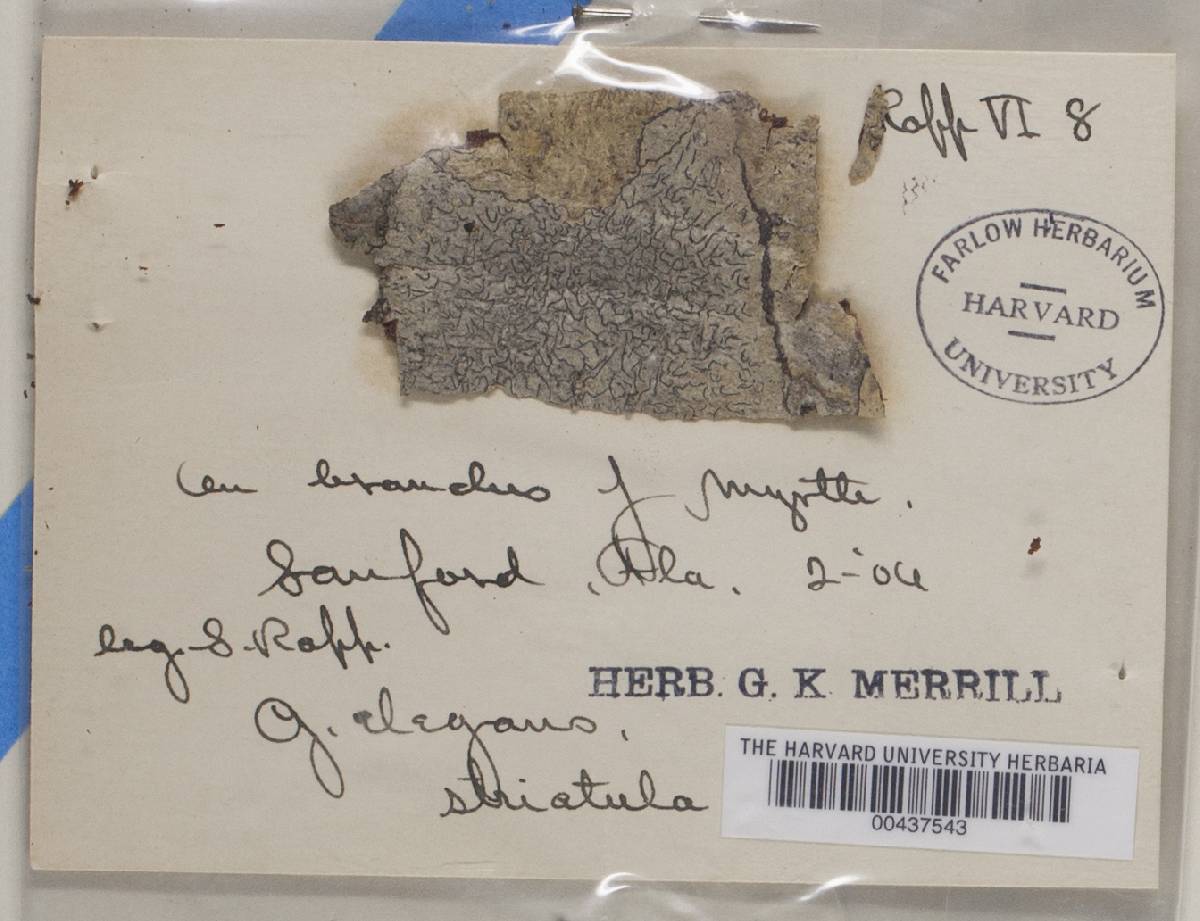 Rapp VI 8
FARLOW HERBARIUM
HARVARD
UNIVERSITY
On branches of Myrtle.
Sanford, Fla. 2-'06
leg. S. Rapp.
HERB. G. K. MERRILL
G. elegans,
striatula
THE HARVARD UNIVERSITY HERBARIA
00437543